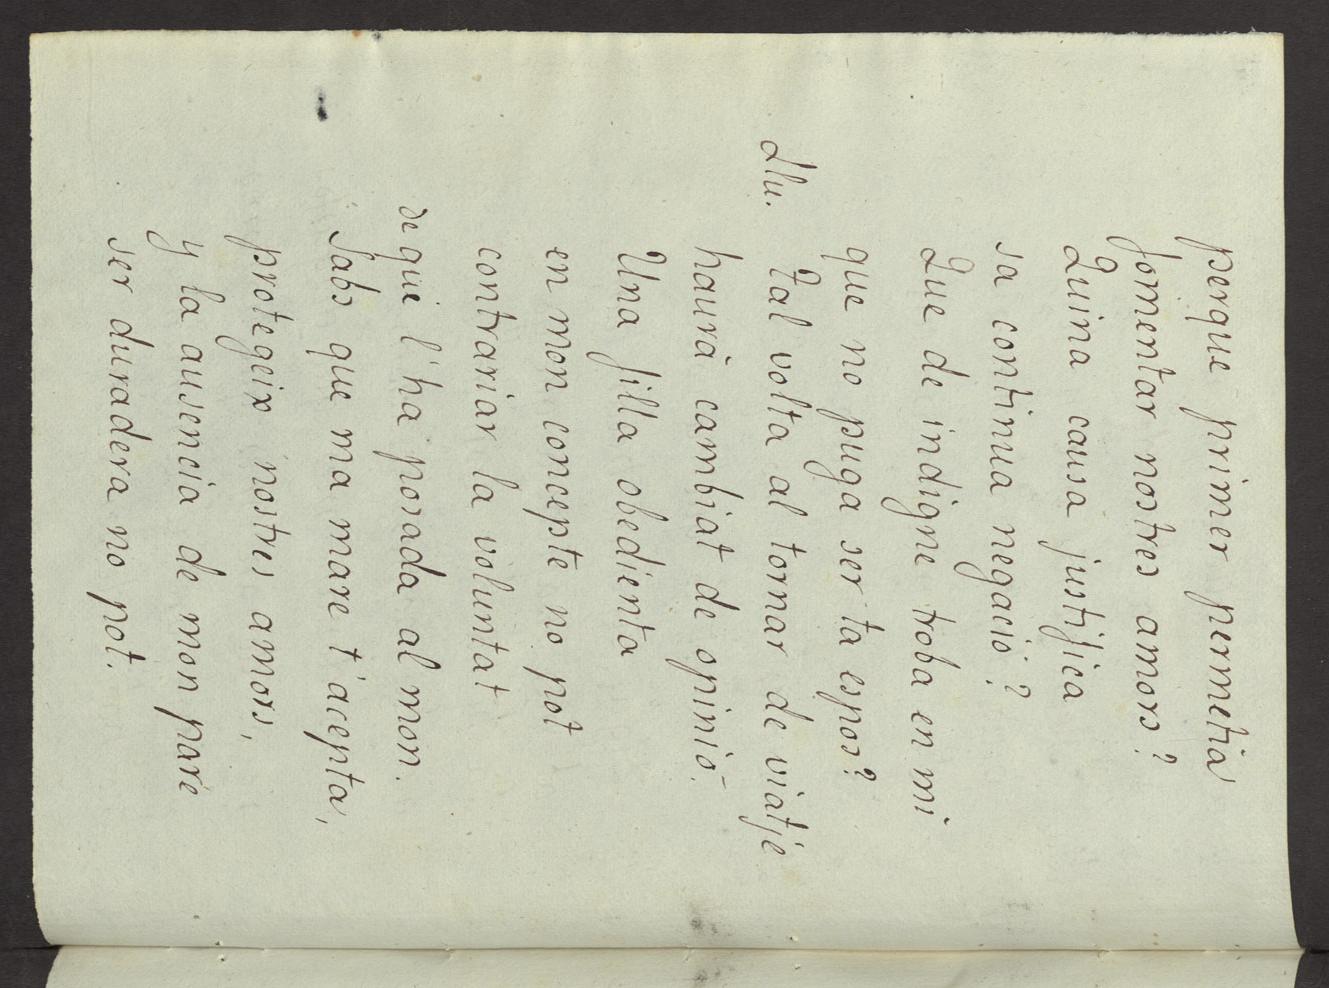 perque primer permetia
fomentar nostres amors?
Quina causa justifica
sa continua negació?
Que de indigne troba en mi
que no puga ser ta espos?
Llu. Tal volta al tornar de viatje
haurá cambiat de opinió.
Una filla obedienta
en mon concepte no pot
contrariar la voluntat
de qui l'ha posada al mon.
Sabs que ma mare t'acepta,
protegeix nostres amors,
y la ausencia de mon pare
ser duradera no pot.